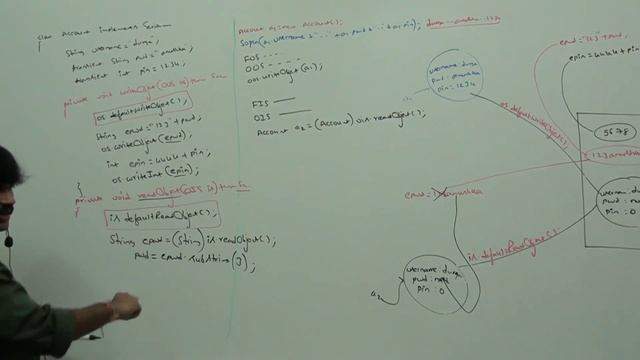 class Account implements Serializ
{
String username = "durga";
transient String pwd = "anushka";
transient int pin = 1234;
private void writeObject(OOS os)
{
os.defaultWriteObject();
String epwd = "123" + pwd;
os.writeObject(epwd);
int epin = 4444 + pin;
os.writeInt(epin);
}
private void readObject(OIS is)
{
is.defaultReadObject();
String epwd = (String) is.readObject();
pwd = epwd.substring(3);
Account a1 = new Account();
Sopln(a1.username
FOS ----
OOS -----
oos.writeObject(a1);
FIS
OIS
Account a2 = (Account) ois.readObject();
username: durga
pwd: anushka
pin = 1234
os.defaultWriteObject();
epwd = "123" + pwd;
epin = 4444 + pin;
5678
123anushka
username: dur
pwd: n
pin: 0
epwd =
anushka
is.defaultReadObject();
username: durga
pwd: null
pin: 0
a2